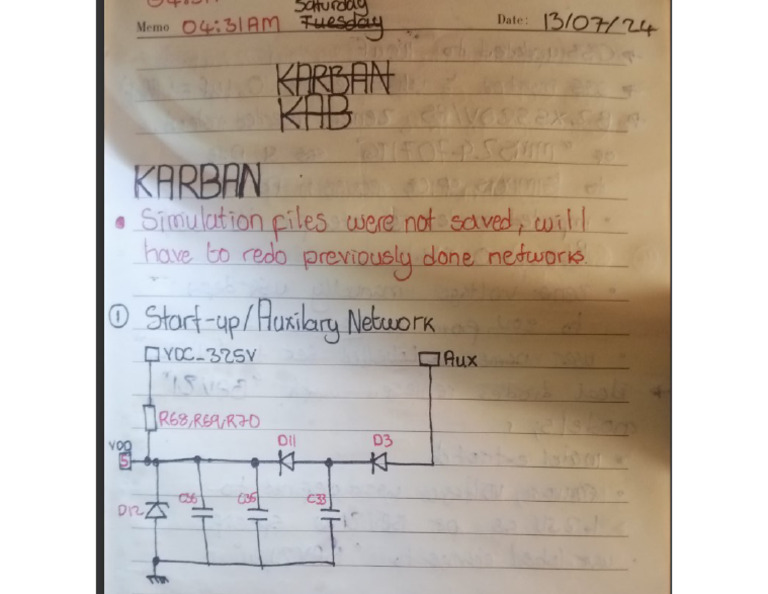 Saturday
Memo 04:31AM Tuesday Date: 13/07/24
KARBAN
KAB
KARBAN
• Simulation files were not saved, will
have to redo previously done networks.
① Start-up/Auxilary Network
VDC_325V Aux
R68,R69,R70
VDD D11 D3
5
D12 C36 C35 C33